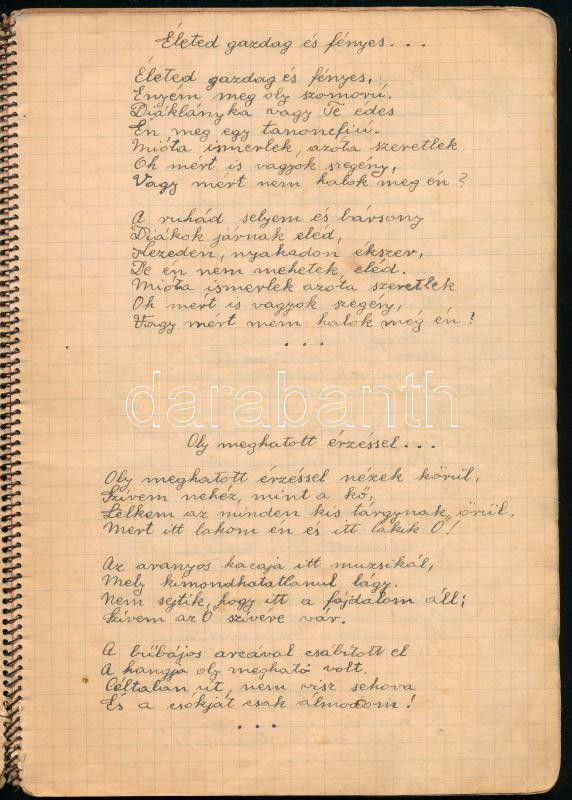 Életed gazdag és fényes...
Életed gazdag és fényes,
Enyém meg oly szomorú.
Diáklányka vagy Te édes
Én meg egy tanoncfiú.
Mióta ismerlek, azóta szeretlek
Oh mért is vagyok szegény,
Vagy mért nem halok meg én?
A ruhád selyem és bársony
Diákok járnak eléd,
Kezeden, nyakadon ékszer,
De én nem mehetek, eléd.
Mióta ismerlek azóta szeretlek
Oh mért is vagyok szegény,
Vagy mért nem halok meg én?
...
darabanth
Oly meghatott érzéssel...
Oly meghatott érzéssel nézek körül,
Szívem nehéz, mint a kő,
Lelkem az minden kis tárgynak örül,
Mert itt lakom én és itt lakik Ő!
Az aranyos kacaja itt muzsikál,
Mely kimondhatatlanul lágy.
Nem sejtik, hogy itt a fájdalom áll;
Szívem az Ő szívére vár.
A bűbájos arcával csábított el
A hangja oly megható volt.
Céltalan út, nem visz sehova
És a csókját csak álmodom!
...